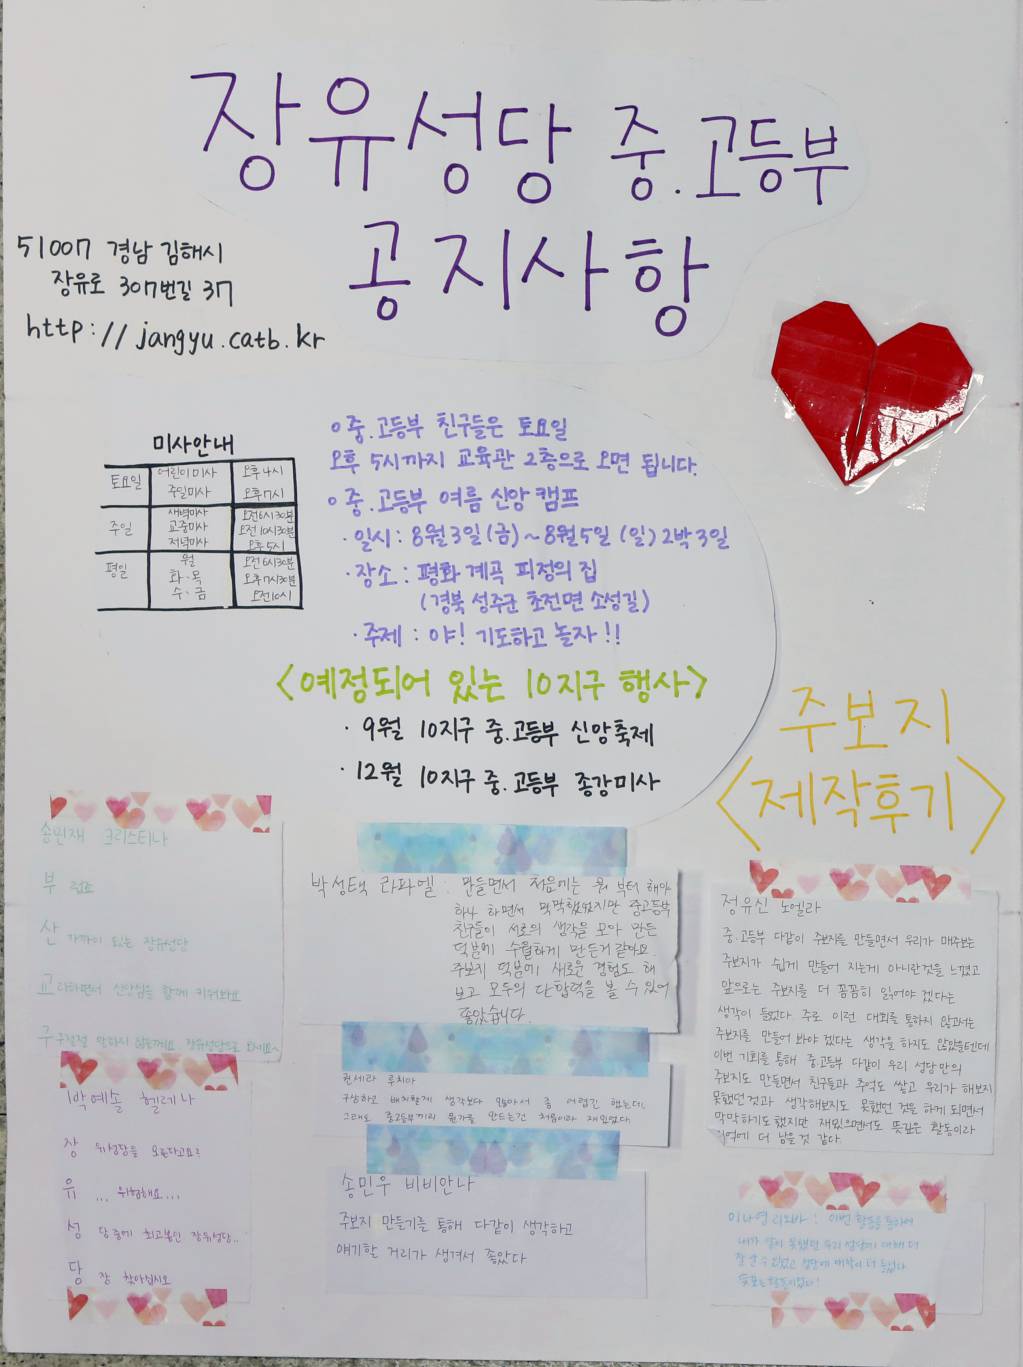 장유성당 중.고등부
공지사항
51007 경남 김해시
장유로 307번길 37
http://jangyu.catb.kr
미사안내
토요일 어린이미사 오후 4시
주일미사 오후 7시
주일 새벽미사 오전 6시 30분
교중미사 오전 10시 30분
저녁미사 오후 5시
평일 월 오전 6시 30분
화·목 오후 7시 30분
수·금 오전 10시
중.고등부 친구들은 토요일
오후 5시까지 교육관 2층으로 오면 됩니다.
중.고등부 여름 신앙 캠프
·일시: 8월 3일(금)~8월 5일 (일) 2박 3일
·장소: 평화 계곡 피정의 집
(경북 성주군 초전면 소성길)
·주제: 야! 기도하고 놀자!!
<예정되어 있는 10지구 행사>
·9월 10지구 중.고등부 신앙축제
·12월 10지구 중.고등부 종강미사
주보지
<제작후기>
송민재 크리스티나
부 럽죠
산 가까이 있는 장유성당
교 리하면서 신앙심을 함께 키워봐요
구 구절절 말하지 않을께요 장유성당으로 오세요~
박예솔 헬레나
장 유성당을 모른다고요?
유 ...위험해요...
성 당중에 최고봉인 장유성당..
당 장 찾아십시오
박성택 라파엘: 만들면서 처음에는 뭐 부터 해야
하나 하면서 막막했었지만 중고등부
친구들이 서로의 생각을 모아 만든
덕분에 수월하게 만든거 같아요.
주보지 덕분에 새로운 경험도 해
보고 모두의 단합력을 볼 수 있어
좋았습니다.
권세라 루치아
구상하고 배치할게 생각보다 많아서 좀 어렵긴 했는데,
그래도 중고등부끼리 뭔가를 만드는건 처음이라 재밌었다.
송민우 비비안나
주보지 만들기를 통해 다같이 생각하고
얘기할 거리가 생겨서 좋았다
정유신 노엘라
중.고등부 다같이 주보지를 만들면서 우리가 매주보는
주보지가 쉽게 만들어 지는게 아니란것을 느꼈고
앞으로는 주보지를 더 꼼꼼히 읽어야 겠다는
생각이 들었다. 주로 이런 대회를 통하지 않고서는
주보지를 만들어 봐야겠다는 생각을 하지도 않았을텐데
이번 기회를 통해 중고등부 다같이 우리 성당만의
주보지도 만들면서 친구들과 추억도 쌓고 우리가 해보지
못했던것과 생각해보지도 못했던 것을 하게 되면서
막막하기도 했지만 재밌으면서도 뜻깊은 활동이라
기억에 더 남을 것 같다.
이나영 리오바: 이번 활동을 통하여
내가 알지 못했던 우리 성당에 대해 더
잘 알 수 있었고 성당에 애착이 더 들었다
활동이었다!